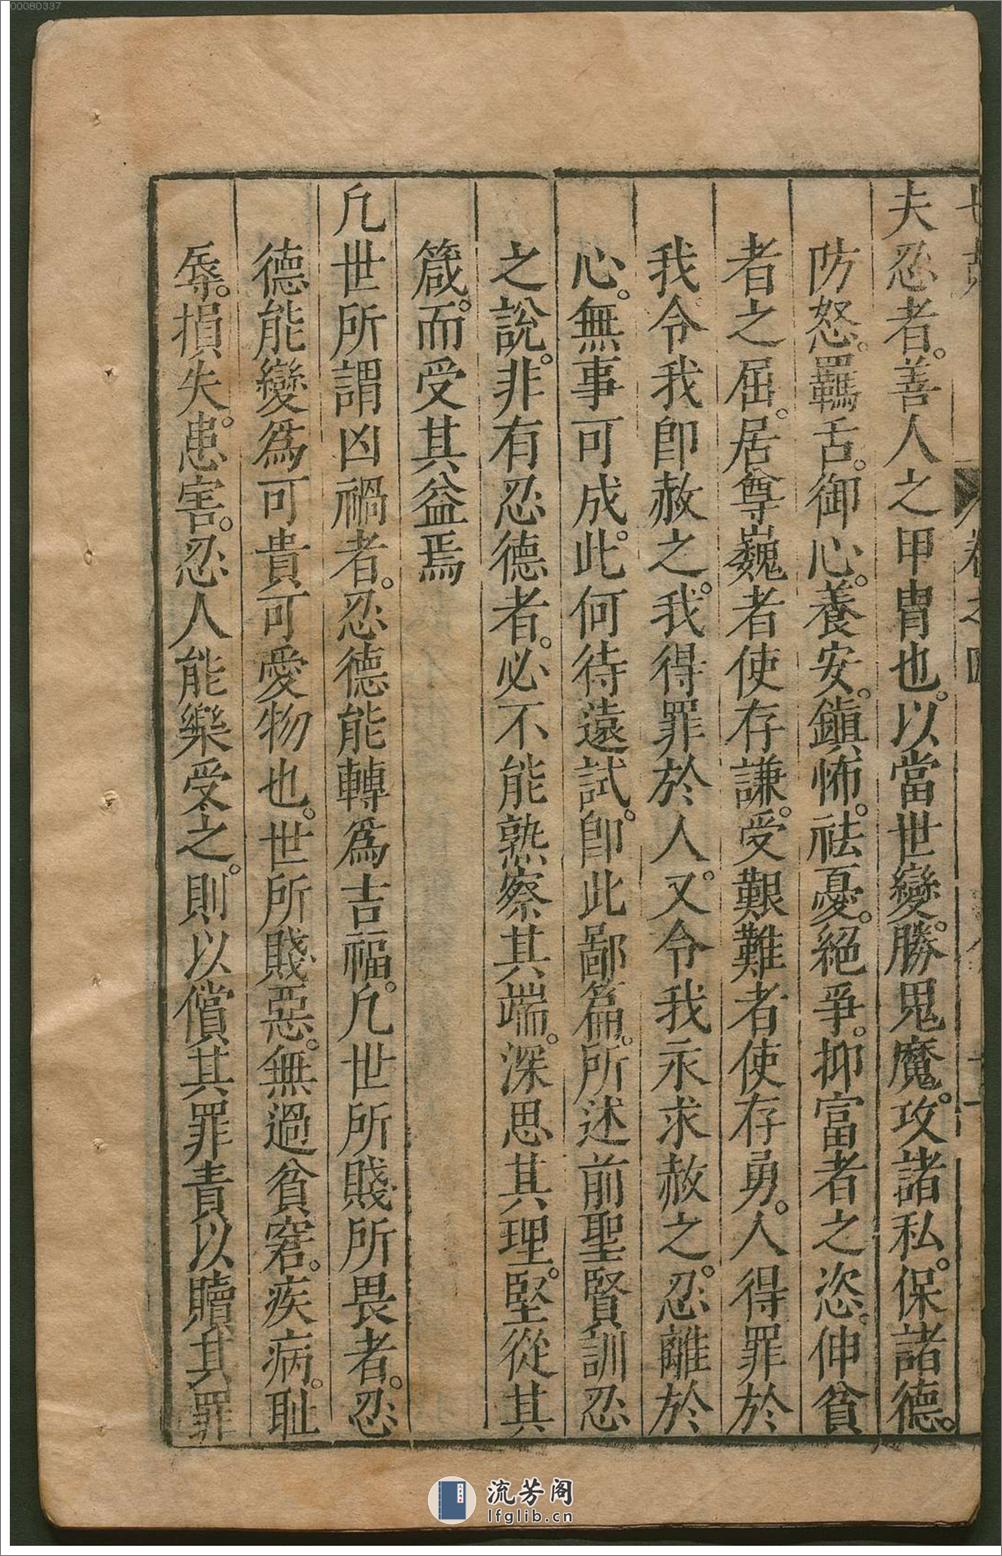 夫忍者。善人之甲冑也。以當世變。勝鬼魔。攻諸私。保諸德。
防怒。羈舌。御心。養安。鎮怖。祛憂。絕爭。抑富者之恣。伸貧
者之屈。居尊巍者使存謙。受艱難者使存勇。人得罪於
我。令我卽赦之。我得罪於人。又令我求赦之。忍離於
心。無事可成。此何待遠試。卽此鄙篇。所述前聖賢訓忍
之說。非有忍德者。必不能熟察其端。深思其理。堅從其
箴。而受其益焉
凢世所謂凶禍者。忍德能轉爲吉福。凢世所賤所畏者。忍
德能變爲可貴可愛物也。世所賤惡。無過貧窘。疾病。耻
辱。損失。患害。忍人能樂受之。則以償其罪責以贖其罪
卷之四
流芳阁
lfglib.cn
00080337